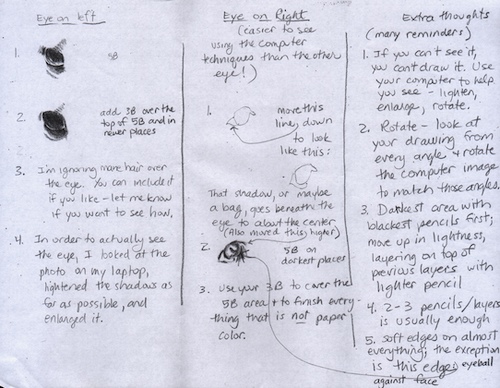 Eye on left
1.
5B
2.
add 3B over the
top of 5B and in
newer places
3. I'm ignoring more hair over
the eye. You can include it
if you like - let me know
if you want to see how.
4. In order to actually see
the eye, I looked at the
photo on my laptop,
lightened the shadows as
far as possible, and
enlarged it.
Eye on Right
(easier to see
using the computer
techniques than the other
eye!)
1.
move this
line, down
to look
like this:
That shadow, or maybe
a bag, goes beneath the
eye to about the center
(Also moved this higher)
2.
5B on
darkest places
3. Use your 3B to cover the
5B area + to finish every-
thing that is not paper
color.
Extra thoughts
(many reminders)
1. If you can't see it,
you can't draw it. Use
your computer to help
you see - lighten,
enlarge, rotate.
2. Rotate - look at
your drawing from
every angle + rotate
the computer image
to match those angles
3. Darkest area with
blackest pencils first;
move up in lightness,
layering on top of
previous layers with
lighter pencil
4. 2-3 pencils/layers
is usually enough
5. soft edges on almost
everything; the exception
is this edge: eyeball
against face